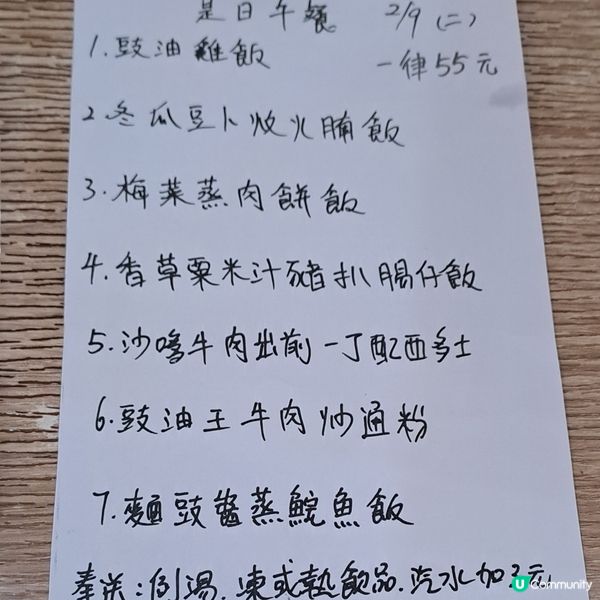 是日午餐 2/9 (二)
1. 豉油雞飯 一律55元
2. 冬瓜豆卜炆火腩飯
3. 梅菜蒸肉餅飯
4. 香草粟米汁豬扒腸仔飯
5. 沙嗲牛肉出前一丁配西多士
6. 豉油王牛肉炒通粉
7. 麵豉醬蒸鯇魚飯
奉送:例湯.凍或熱飲品.汽水加3元
U Community